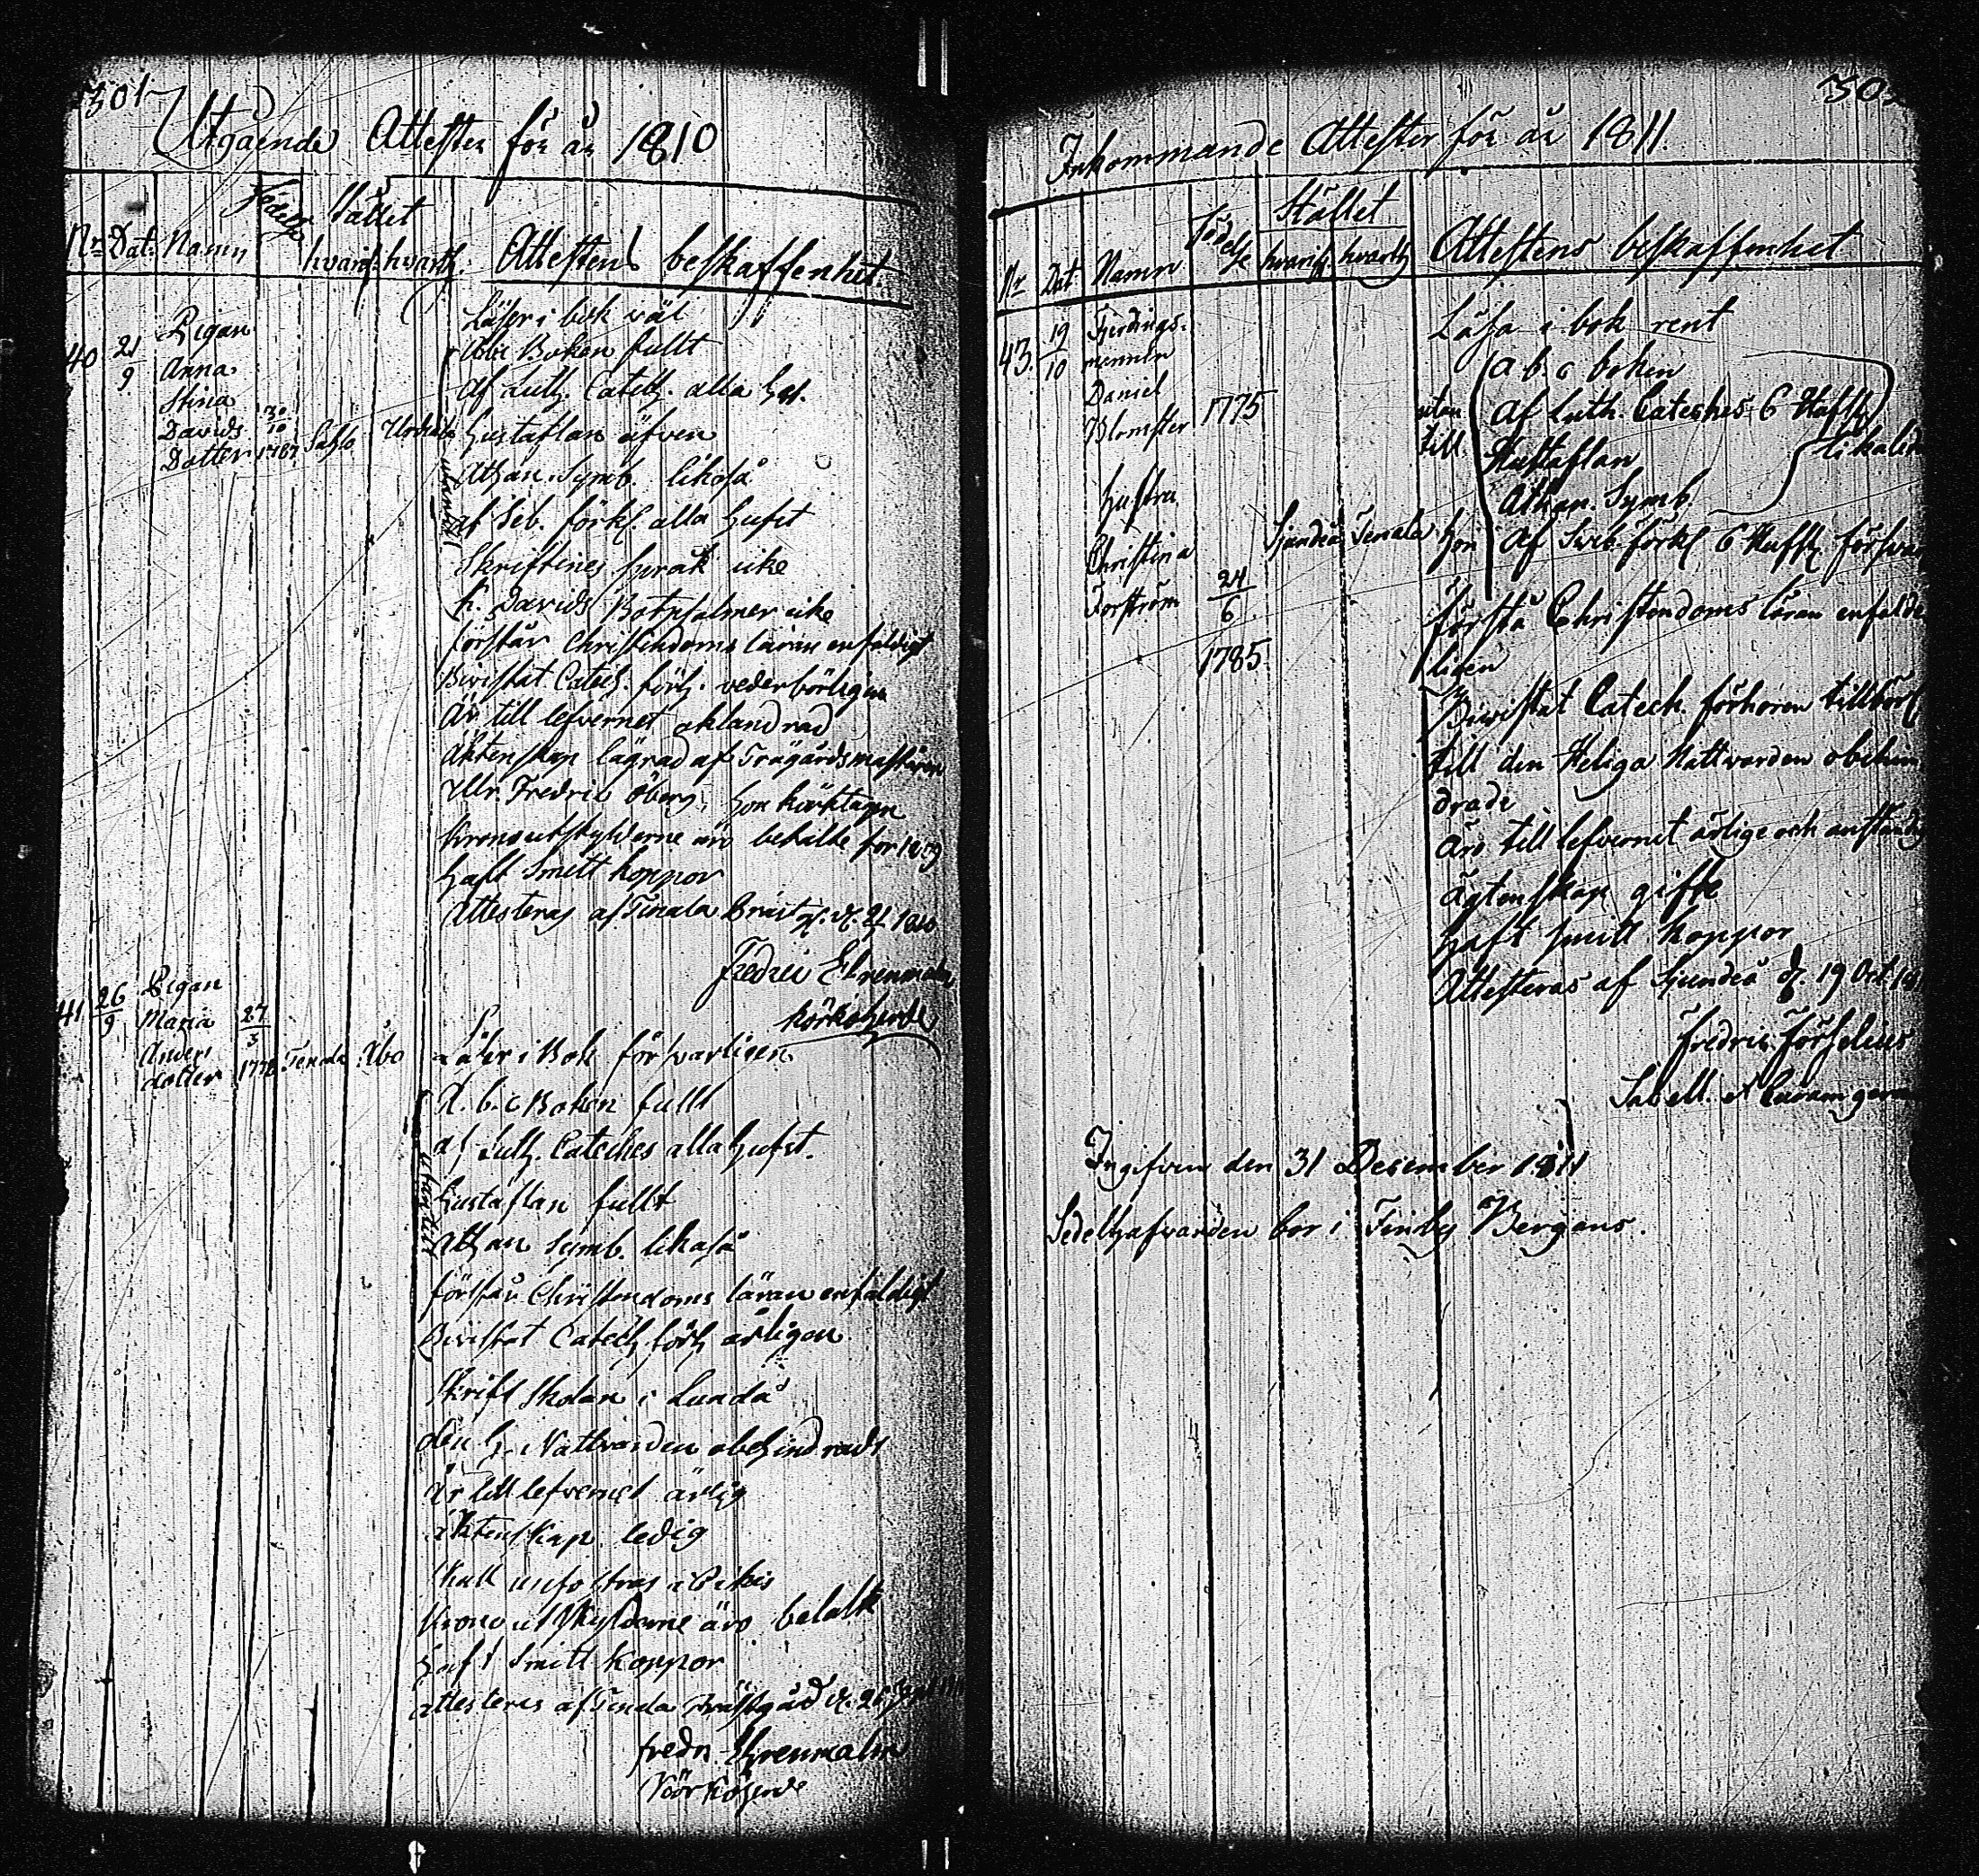 301
Utgående Attester för år 1810
Födelse Stället
Nr Dat: Namn hvarif. hvarth. Attestens beskaffenhet.
40 21/9 Pigan
Anna
Stina
Davids
Dotter 30/10 1767 Urdiala
Läser i bok väl
Abc Boken fullt
af Luth. Catech. alla Hst.
Hustaflan äfven
Athan. Symb. likaså
af Seb. förkl. alla hufst
Skriftenes språk icke
K. Davids Botpsalmer icke
förstår Christendoms läran enfaldigt
Bivistat Catech. förh. vederbörligen
Är till lefvernet oklandrad
Äktenskap lägrad af Trägårdsmästaren
Mr. Fredric Öberg, hon kyrktagen
Kronoutskylderne äro betalte för 1809
haft Smitt koppor
Attesteras af Tenala d. 21 1810
Fredric Ehrenmalm
körkoherde
41 26/9 Pigan
Maria
Anders
dotter 27/3 1778 Tenala Åbo
Läser i Bok försvarligen
A.b.c Boken fullt
af Luth. Cateches alla hufst.
Hustaflan fullt
Athan Symb. likaså
förstår Christendoms läran enfaldigt
Bivistat Catech. förh årligen
Skrift Skolan i
den H. Nattvarden obehindradt
Är till lefvernet ärlig
äktenskap ledig
Krono utskylderne äro betalte
haft Smitt koppor
attesteras af Tenala Prästgård d. 26 Sept
Fredr. Ehrenmalm
Körkoherde
Inkommande Attester för år 1811.
Stället
Nr Dat Namn Födelse hvarifr hvarth Attestens beskaffenhet
43. 19/10 Fjerdings-
mannen
Daniel
Blomster 1775
hustru
Christina
Forsström 24/6 1785 Sjundeå Tenala
Läsa i bok rent
a b c boken
utan till af Luth. Cateches. 6 Hufst
Hustaflan
Athan. Symb. likaled
hon af Sveb. förkl 6 Hufst. försvar
förstå Christendoms läran enfalde
ligen
Biwistat Catech. förhören tillbörl
till den Heliga Nattwarden obehin
drade
äro till lefvernet ärlige och anständig
ägtenskap gifte
haft smitt koppor
Attesteras af Sjundeå d. 19 Oct. 181
Fredric Forselius
Sacell. et
Ingifven den 31 December 1811
Sedelhafvanden bor i Finby Bergans.